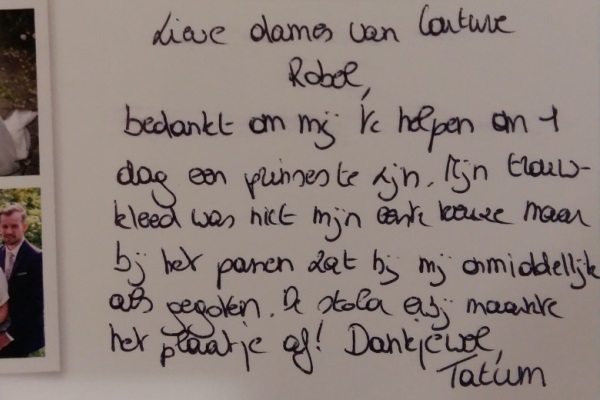 Lieve dames van Couture
Robel,
bedankt om mij te helpen om 1
dag een prinses te zijn. Mijn trouw-
kleed was niet mijn eerste keuze maar
bij het passen zat hij mij onmiddellijk
als gegoten. De stola erbij maakte
het plaatje af! Dankjewel,
Tatum